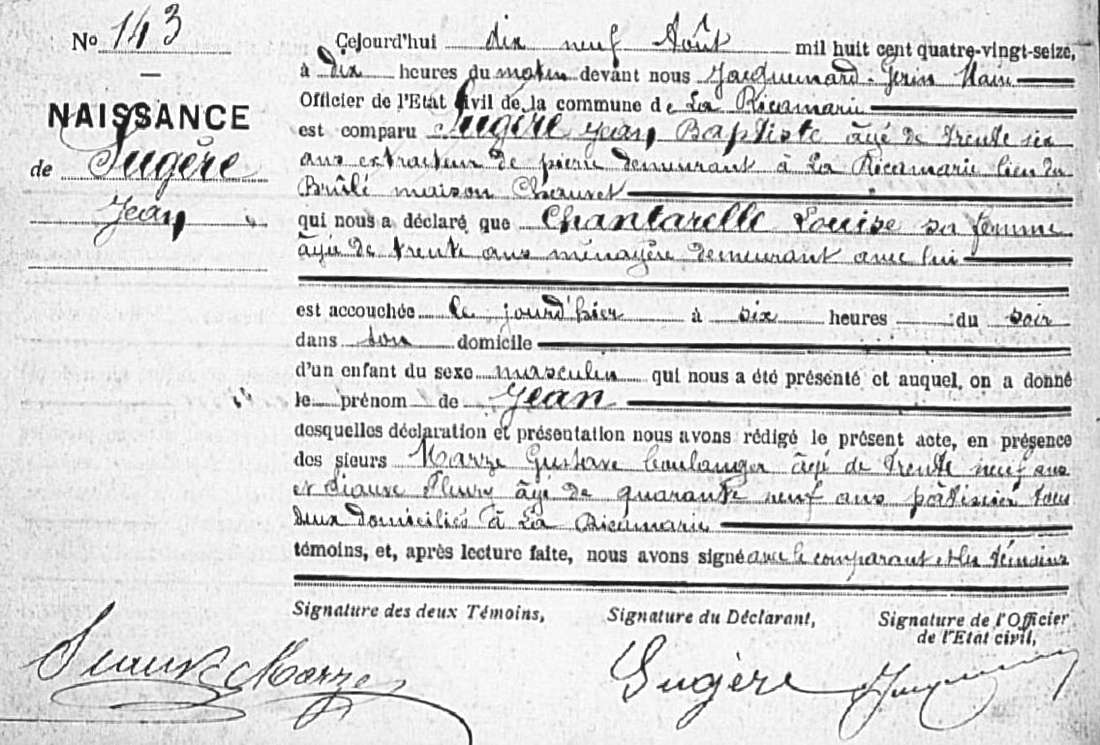 No 143
NAISSANCE
de Sugère
Jean
Cejourd'hui dix neuf Août mil huit cent quatre-vingt-seize,
à dix heures du matin devant nous Jacquemard
Officier de l'Etat Civil de la commune de La Ricamarie
est comparu Sugère Jean Baptiste âgé de trente six
ans extracteur de pierre demeurant à La Ricamarie lieu du
Brûlé maison Chauvet
qui nous a déclaré que Chantarelle Louise sa femme
âgée de trente ans ménagère demeurant avec lui
est accouchée le jourd'hier à six heures du soir
dans son domicile
d'un enfant du sexe masculin qui nous a été présenté et auquel on a donné
le prénom de Jean
desquelles déclaration et présentation nous avons rédigé le présent acte, en présence
des sieurs Marze Gustave boulanger âgé de trente neuf ans
et Fleury âgé de quarante neuf ans pâtissier tous
deux domiciliés à La Ricamarie
témoins, et, après lecture faite, nous avons signé avec le comparant et les témoins
Signature des deux Témoins, Signature du Déclarant, Signature de l'Officier
de l'Etat civil,
Marze Sugère